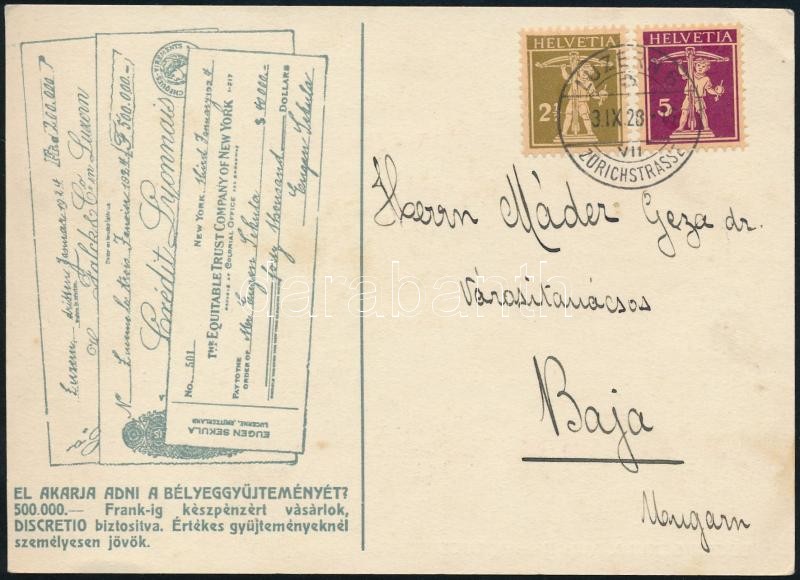 HELVETIA HELVETIA
2½ 5
LUZERN
3.IX.28
VII
ZÜRICHSTRASSE
Luzern, dritten Januar 1924
Falck & Cie Luzern
CHÈQUES-VIREMENTS
Luzern le trois Janvier 1924 500.000.-
Crédit Lyonnais
No. 501
NEW YORK third January 1924 1-217
THE EQUITABLE TRUST COMPANY OF NEW YORK
COLONIAL OFFICE
PAY TO THE
ORDER OF Mr Eugen Sekula $ 40000.-
forty thousand DOLLARS
Eugen Sekula
EUGEN SEKULA
LUCERNE, SWITZERLAND
Herrn Máder Geza dr.
Városi tanácsos
Baja
Ungarn
darabanth
EL AKARJA ADNI A BÉLYEGGYÜJTEMÉNYÉT?
500.000.— Frank-ig kèszpènzèrt vàsàrlok,
DISCRETIO biztositva. Értékes gyüjteményeknél
személyesen jövök.